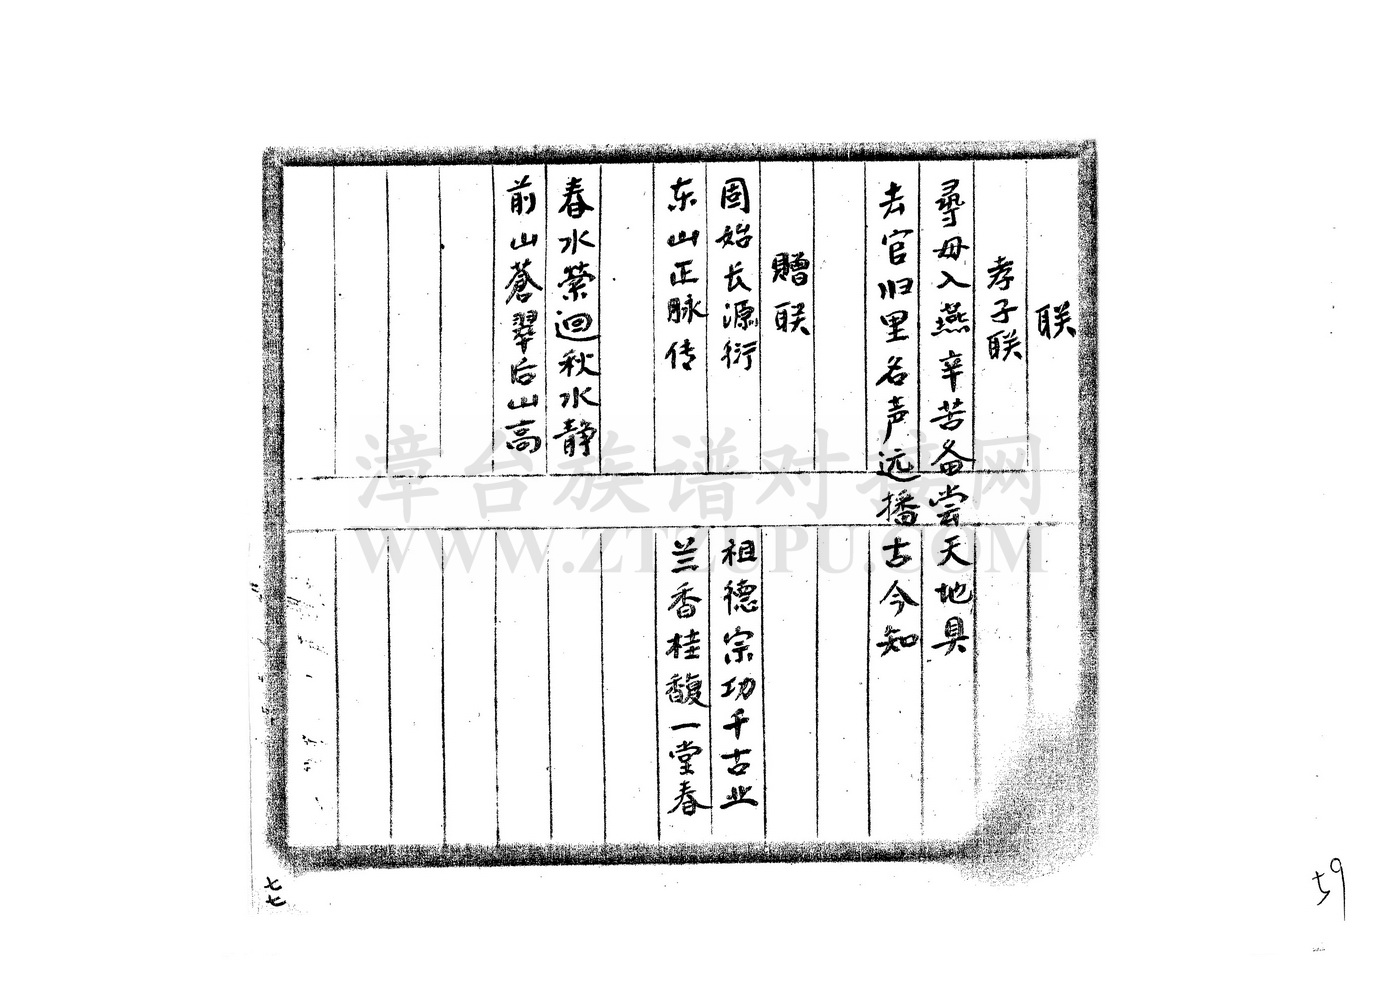 联
孝子联
尋母入燕辛苦备尝天地具
去官归里名声远播古今知
赠联
固始长源衍
东山正脉传
祖德宗功千古业
兰香桂馥一堂春
春水萦迴秋水静
前山蒼翠后山高
漳台族谱对接网
WWW.ZTZUPU.COM
七七
59